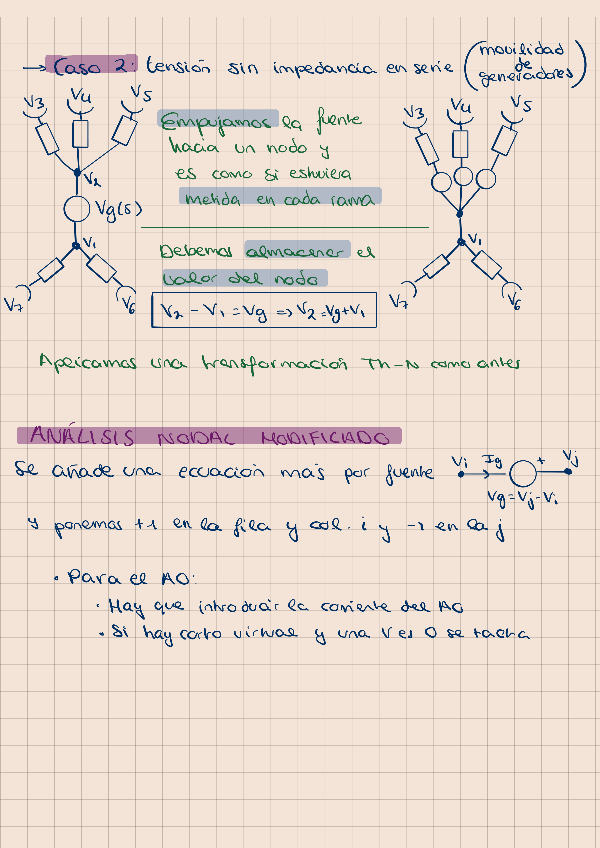 → Caso 2: tensión sin impedancia en serie (movilidad de generadores)
V3 V4 V5
V2
Vg(s)
V1
V7 V6
Empujamos la fuente
hacia un nodo y
es como si estuviera
metida en cada rama
Debemos almacenar el
valor del nodo
V2 - V1 = Vg => V2 = Vg + V1
V3 V4 V5
V1
V7 V6
Aplicamos una transformación Th-N como antes
ANÁLISIS NODAL MODIFICADO
Se añade una ecuación más por fuente
Vi Ig + Vj
Vg = Vj - Vi
y ponemos +1 en la fila y col. i y -1 en la j
• Para el AO:
• Hay que introducir la corriente del AO
• Si hay corto virtual y una V es 0 se tacha